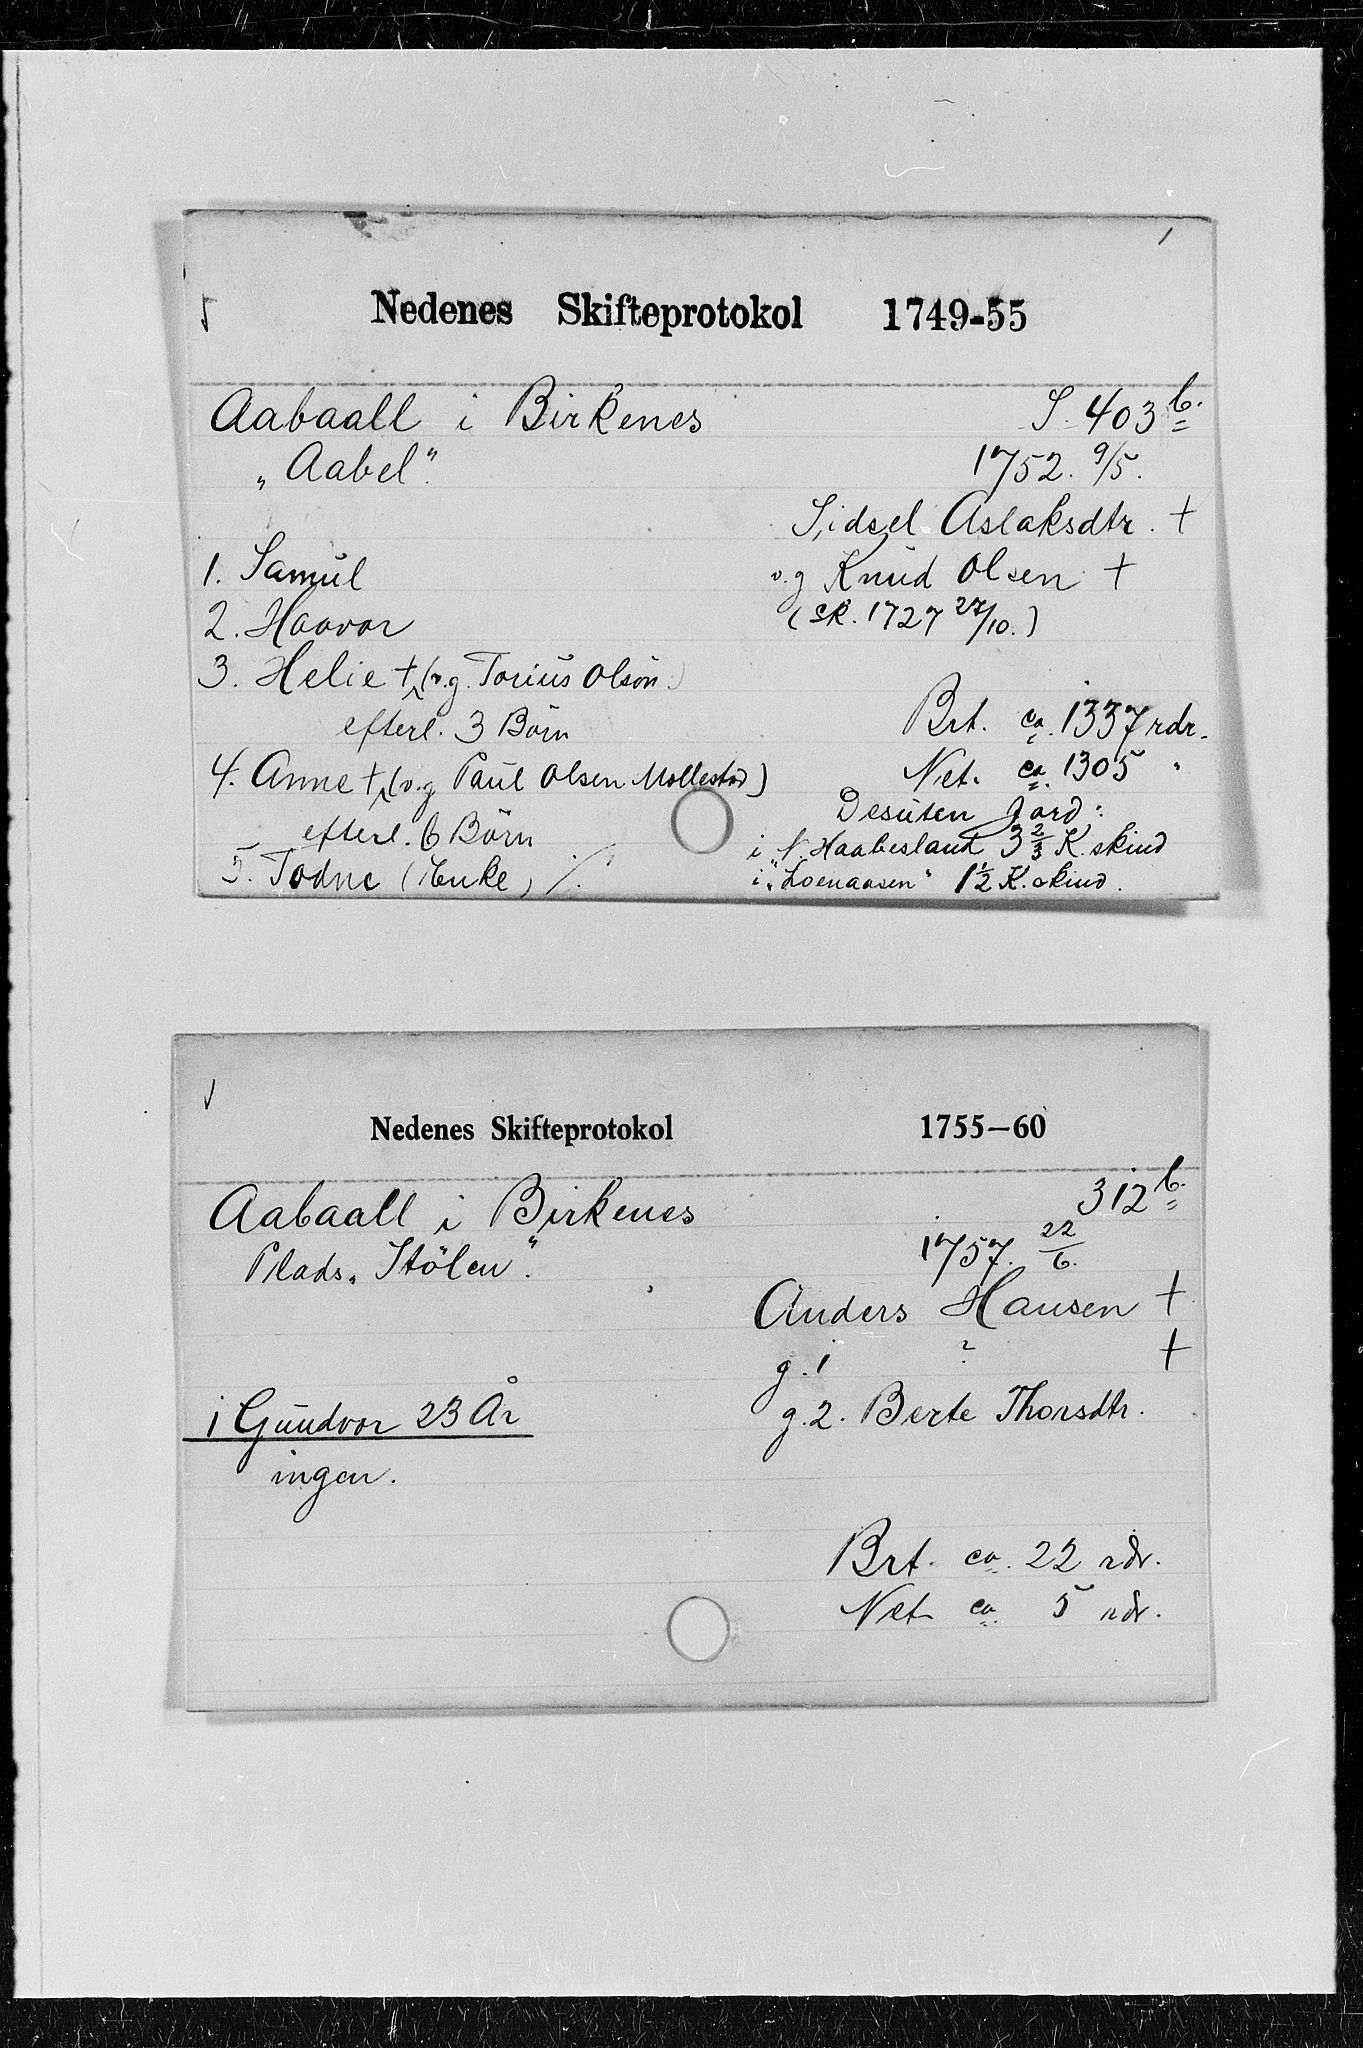 1
Nedenes Skifteprotokol 1749-55
Aabaall i Birkenes S. 403 b.
„Aabel". 1752. 9/5.
Sidsel Aslaksdtr. †
1. Samúl v. g Knúd Olsen †
2. Haavor (sk. 1727 27/10.)
3. Helie † (v. g. Tariús Olsøn.)
efterl. 3 Börn Brt. ca. 1337 rdr.
4. Anne † (v. g Paúl Olsen Mollestad) Net. ca. 1305 "
efterl. 6 Börn Desúten Jord:
i N. Haabesland 3 2/3 K. skind
5. Todne (Enke) ./. i „Loenaasen" 1 1/2 K. skind.
Nedenes Skifteprotokol 1755–60
Aabaall i Birkenes 312 b.
Plads „Stölen". 1757. 22/6.
Anders Hansen †
g. 1 ? †
1 Gúndvor 23 År g. 2. Berte Thorsdtr.
ingen.
Brt. ca. 22 rdr.
Net ca. 5 rdr.